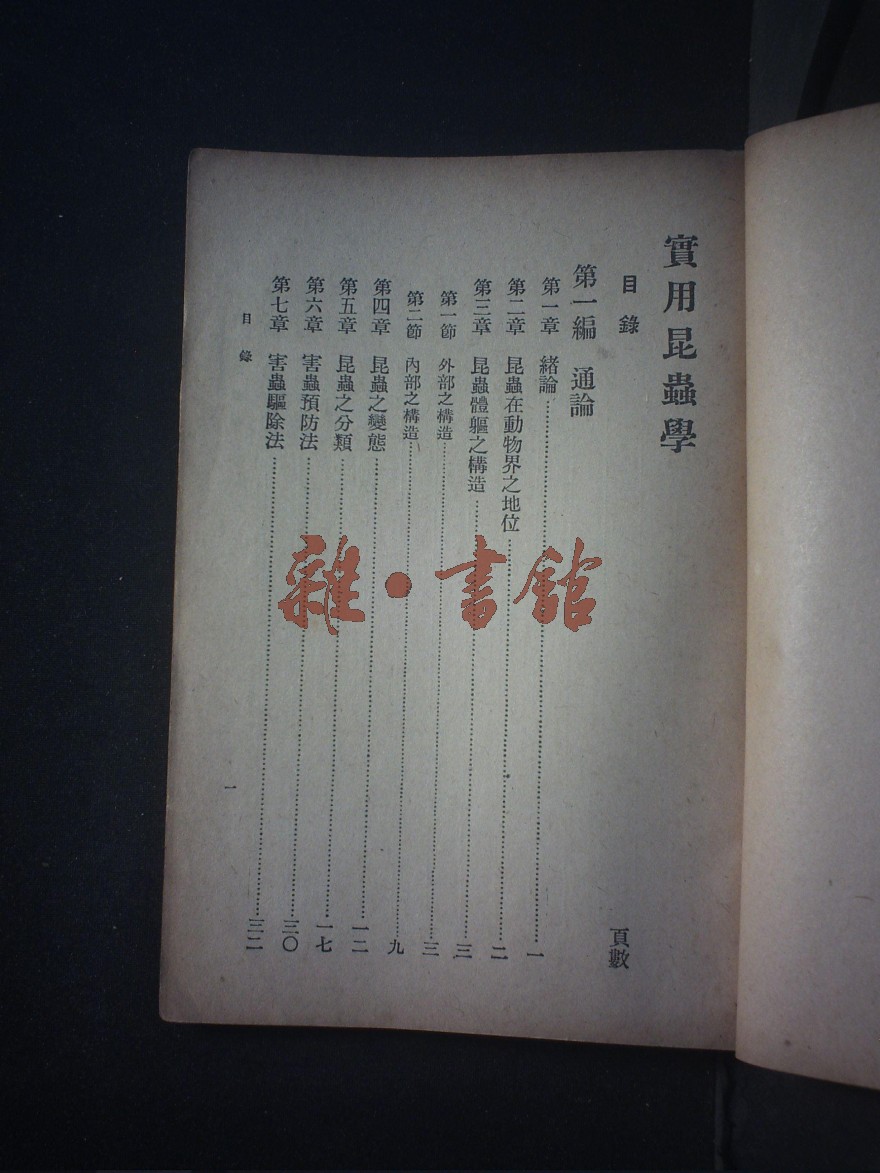 實用昆蟲學
目錄 頁數
第一編 通論
第一章 緒論……一
第二章 昆蟲在動物界之地位……二
第三章 昆蟲體軀之構造……三
第一節 外部之構造……三
第二節 內部之構造……九
第四章 昆蟲之變態……一二
第五章 昆蟲之分類……一七
第六章 害蟲預防法……三〇
第七章 害蟲驅除法……三二
目錄 一
雜·書館